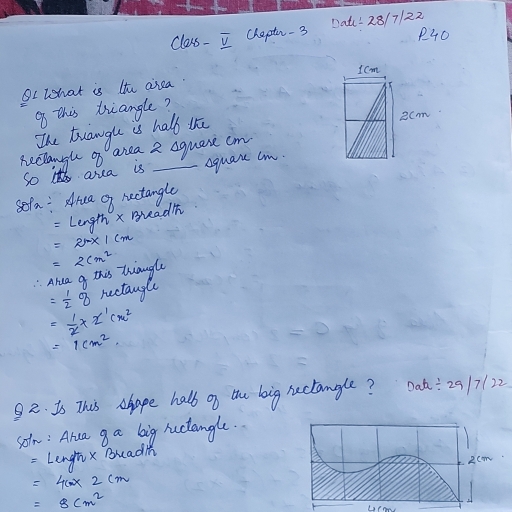 Class - V Chapter - 3 Date:- 28/7/22
P.40
Q1 What is the area
of this triangle?
The triangle is half the
rectangle of area 2 square cm.
So its area is ____ square cm.
1cm
2cm
Soln: Area of rectangle
= Length x Breadth
= 2cm x 1cm
= 2cm²
∴ Area of this triangle
= 1/2 of rectangle
= 1/2 x 2 1 cm²
= 1cm².
Q2. Is this shape half of the big rectangle? Date:- 29/7/22
Soln: Area of a big rectangle.
= Length x Breadth
= 4cm x 2 cm
= 8 cm²
2cm
4cm